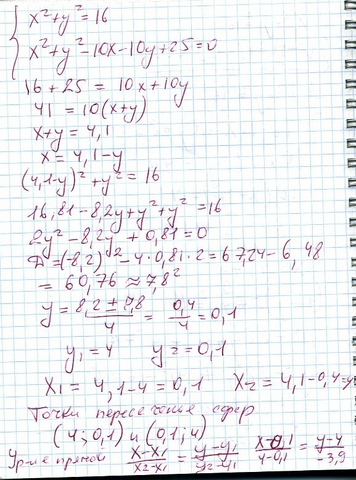 x²+y²=16
x²+y²-10x-10y+25=0
16+25 = 10x+10y
41 = 10(x+y)
x+y = 4,1
x = 4,1-y
(4,1-y)²+y² = 16
16,81-8,2y+y²+y²=16
2y²-8,2y+0,81=0
D=(-8,2)²-4·0,81·2=67,24-6,48
= 60,76 ≈ 7,8²
y = 8,2±7,8/4 = 0,4/4 = 0,1
y₁=4 y₂=0,1
x₁ = 4,1-4=0,1 x₂ = 4,1-0,4=4
Точки пересечения сфер
(4;0,1) и (0,1;4)
Ур-ие прямой x-x₁/x₂-x₁ = y-y₁/y₂-y₁ x-0,1/4-0,1 = y-4/-3,9